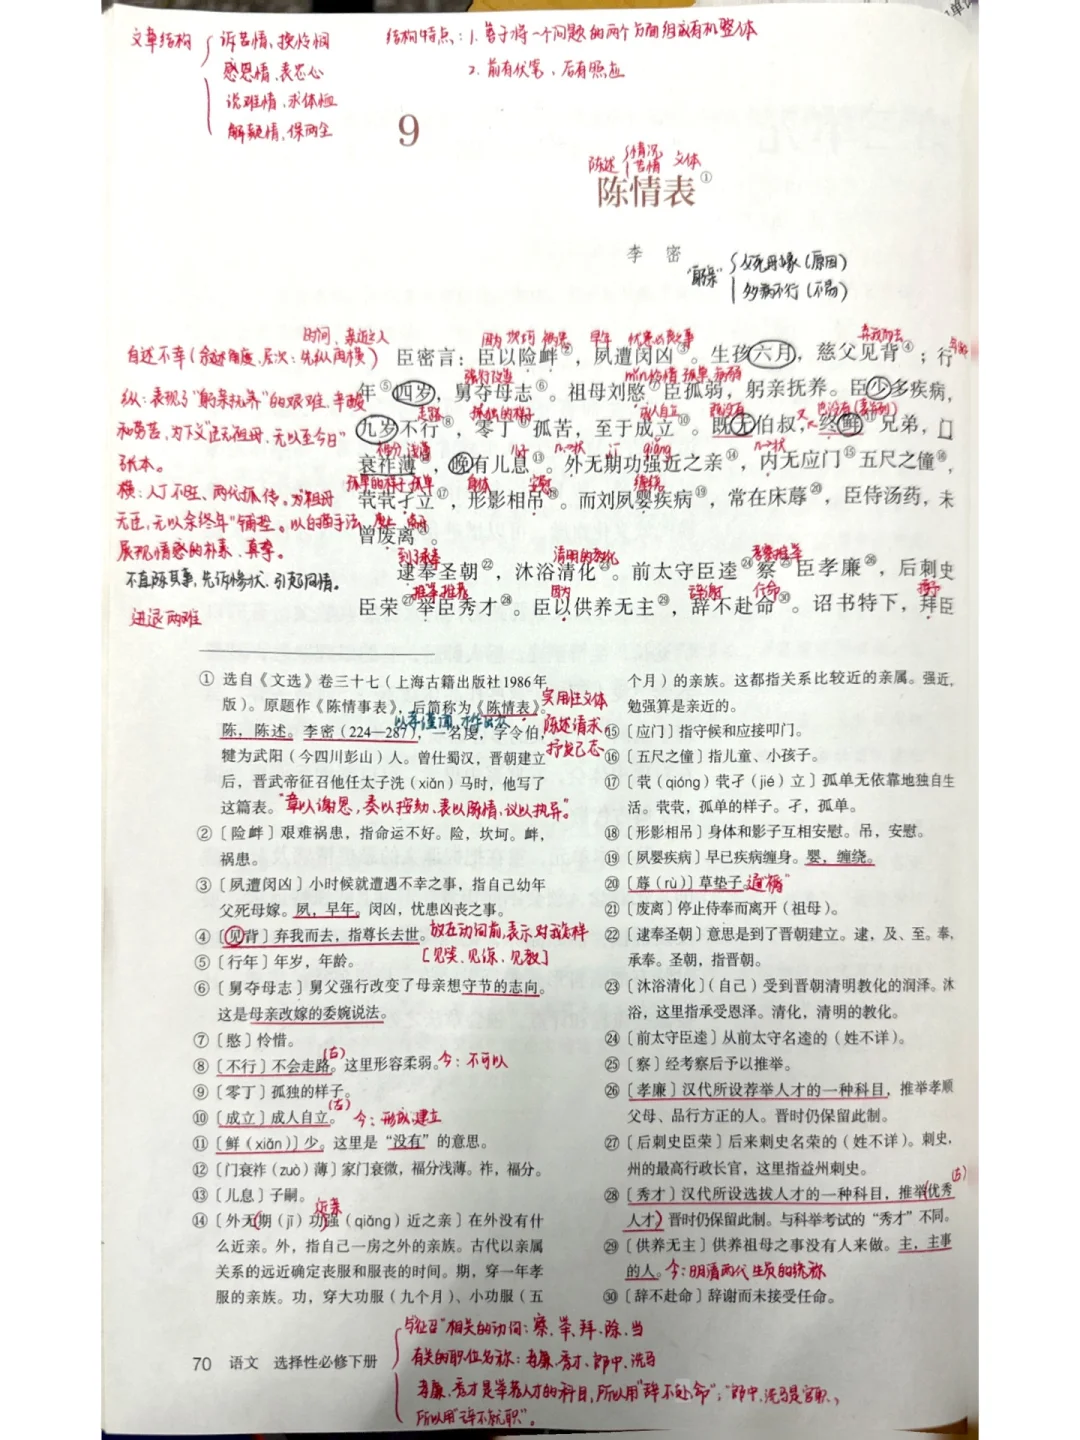 文章结构 诉苦情、授怜悯
感恩情、表忠心
说难情、求体恤
解疑情、保两全
结构特点：1. 善于将一个问题的两个方面组成有机整体
2. 前有伏笔、后有照应
9
陈述 情况 苦情 文体
陈情表①
李 密
“躬亲” 父死母嫁（原因）
多病不行（不易）
自述不幸（
时间、亲近之人
因为 坎坷 祸患 早年 忧患凶丧之事 弃我而去
臣密言：臣以险衅②，夙遭闵凶③。生孩六月，慈父见背④；行
强行改变
年⑤四岁，舅夺母志⑥。祖母刘愍⑦臣孤弱，躬亲抚养。臣少多疾病，
走路 孤独的样子 成人自立 既没有 也没有
九岁不行⑧，零丁⑨孤苦，至于成立⑩。既无伯叔，终鲜⑪兄弟，门
福分浅薄 qiǎng
衰祚薄⑫，晚有儿息⑬。外无期功强近之亲⑭，内无应门⑮五尺之僮⑯，
孤单的样子 孤单 身体 安慰 缠绕
茕茕孑立⑰，形影相吊⑱。而刘夙婴疾病⑲，常在床蓐⑳，臣侍汤药，未
曾废离㉑。
到了承奉 清明的教化 考察推举
逮奉圣朝㉒，沐浴清化㉓。前太守臣逵㉔察㉕臣孝廉㉖，后刺史
推举推荐 因为 辞谢 任命 授予
臣荣㉗举臣秀才㉘。臣以供养无主㉙，辞不赴命㉚。诏书特下，拜臣
纵：表现了“躬亲抚养”的艰难、辛酸
和劳苦，为下文“臣无祖母，无以至今日”
张本。
横：人丁不旺、两代孤传。为“祖母
无臣，无以余终年”铺垫。以白描手法
展现情感的朴素、真挚。
不直陈其事，先诉惨状，引起同情。
进退两难
① 选自《文选》卷三十七（上海古籍出版社1986年
版）。原题作《陈情事表》，后简称为《陈情表》。
陈，陈述。李密（224—287），一名虔，字令伯，
犍为武阳（今四川彭山）人。曾仕蜀汉，晋朝建立
后，晋武帝征召他任太子洗（xiǎn）马时，他写了
这篇表。“章以谢恩，奏以按劾，表以陈情，议以执异。”
实用性文体
陈述请求
抒发己志
② 〔险衅〕艰难祸患，指命运不好。险，坎坷。衅，
祸患。
③ 〔夙遭闵凶〕小时候就遭遇不幸之事，指自己幼年
父死母嫁。夙，早年。闵凶，忧患凶丧之事。
④ 〔见背〕弃我而去，指尊长去世。放在动词前，表示对我怎样
[见笑、见谅、见教]
⑤ 〔行年〕年岁，年龄。
⑥ 〔舅夺母志〕舅父强行改变了母亲想守节的志向。
这是母亲改嫁的委婉说法。
⑦ 〔愍〕怜惜。
⑧ 〔不行〕不会走路。（古）这里形容柔弱。今：不可以
⑨ 〔零丁〕孤独的样子。
⑩ 〔成立〕成人自立。（古）今：形成、建立
⑪ 〔鲜（xiǎn）〕少。这里是“没有”的意思。
⑫ 〔门衰祚（zuò）薄〕家门衰微，福分浅薄。祚，福分。
⑬ 〔儿息〕子嗣。
近亲
⑭ 〔外无期（jī）功强（qiǎng）近之亲〕在外没有什
么近亲。外，指自己一房之外的亲族。古代以亲属
关系的远近确定丧服和服丧的时间。期，穿一年孝
服的亲族。功，穿大功服（九个月）、小功服（五
个月）的亲族。这都指关系比较近的亲属。强近，
勉强算是亲近的。
⑮ 〔应门〕指守候和应接叩门。
⑯ 〔五尺之僮〕指儿童、小孩子。
⑰ 〔茕（qióng）茕孑（jié）立〕孤单无依靠地独自生
活。茕茕，孤单的样子。孑，孤单。
⑱ 〔形影相吊〕身体和影子互相安慰。吊，安慰。
⑲ 〔夙婴疾病〕早已疾病缠身。婴，缠绕。
⑳ 〔蓐（rù）〕草垫子。通“褥”
㉑ 〔废离〕停止侍奉而离开（祖母）。
㉒ 〔逮奉圣朝〕意思是到了晋朝建立。逮，及、至。奉，
承奉。圣朝，指晋朝。
㉓ 〔沐浴清化〕（自己）受到晋朝清明教化的润泽。沐
浴，这里指承受恩泽。清化，清明的教化。
㉔ 〔前太守臣逵〕从前太守名逵的（姓不详）。
㉕ 〔察〕经考察后予以推举。
㉖ 〔孝廉〕汉代所设荐举人才的一种科目，推举孝顺
父母、品行方正的人。晋时仍保留此制。
㉗ 〔后刺史臣荣〕后来刺史名荣的（姓不详）。刺史，
州的最高行政长官，这里指益州刺史。
㉘ 〔秀才〕汉代所设选拔人才的一种科目，推举优秀（古）
人才，晋时仍保留此制。与科举考试的“秀才”不同。
㉙ 〔供养无主〕供养祖母之事没有人来做。主，主事
的人。今：明清两代生员的统称
㉚ 〔辞不赴命〕辞谢而未接受任命。
70 语文 选择性必修下册
与“征召”相关的动词：察、举、拜、除、当
有关的职位名称：孝廉、秀才、郎中、洗马
孝廉、秀才是举荐人才的科目，所以用“辞不赴命”；郎中、洗马是官职，
所以用“辞不就职”。